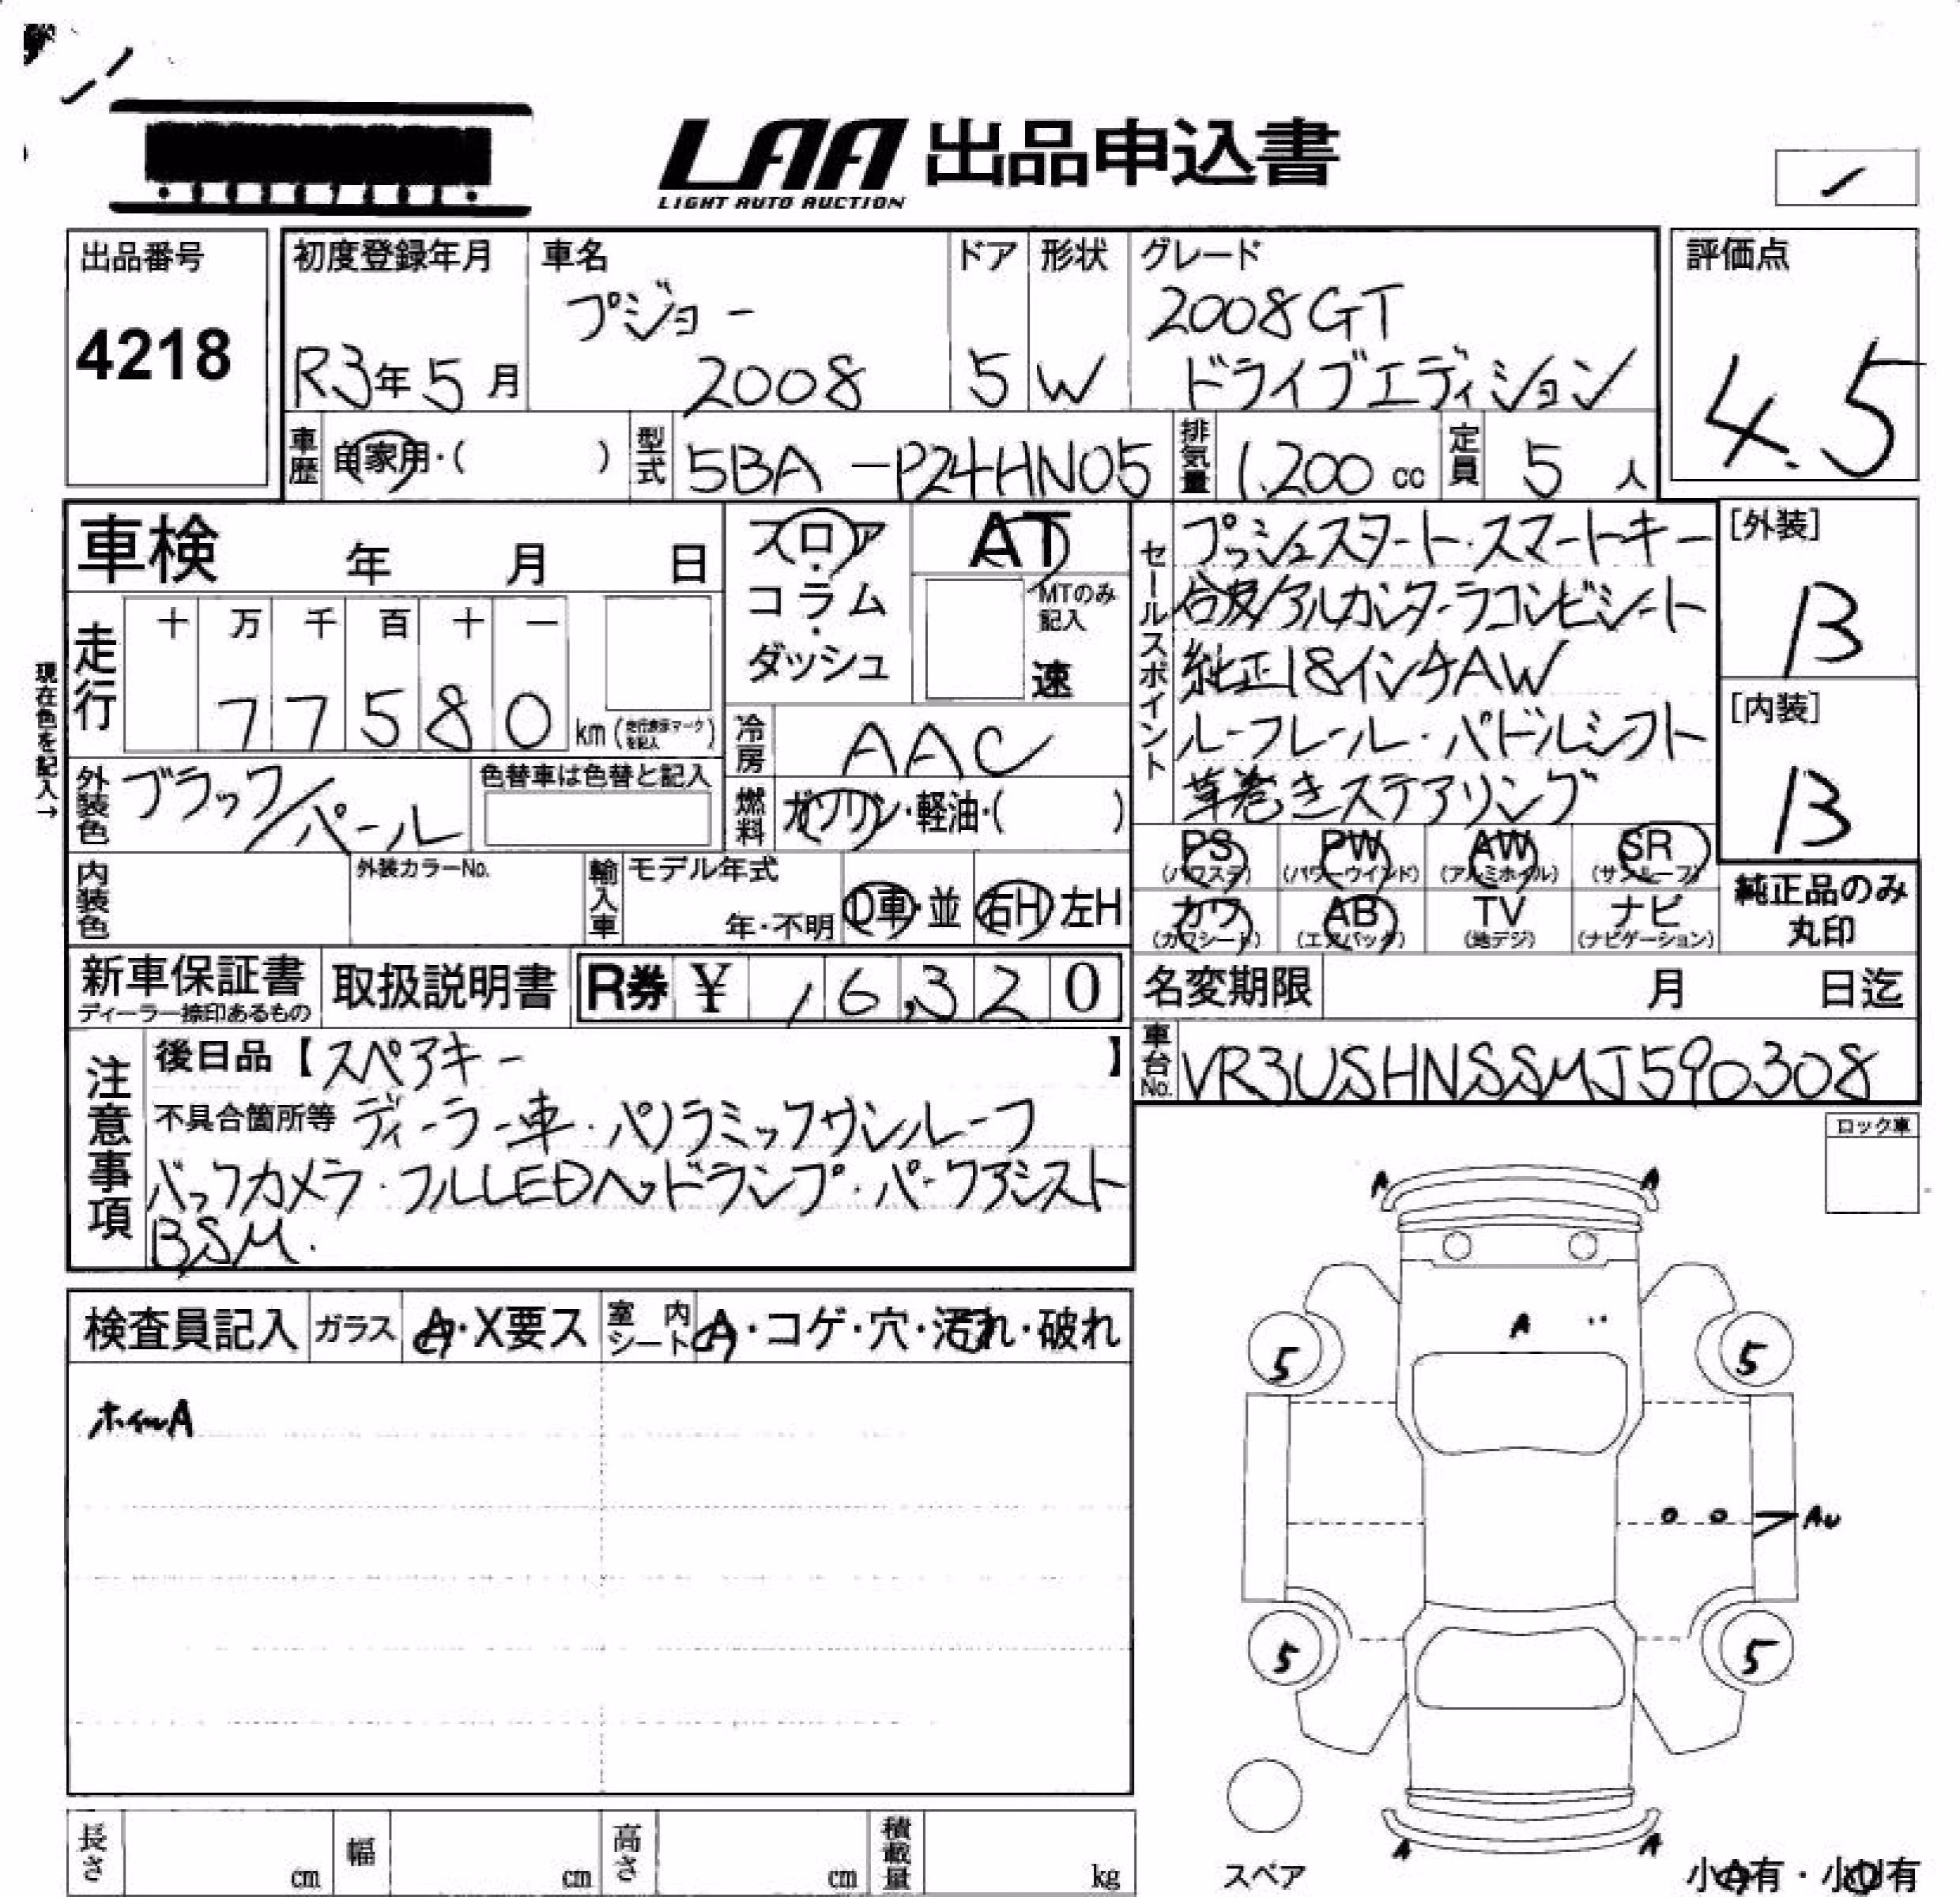 LAA 出品申込書
LIGHT AUTO AUCTION
出品番号
4218
初度登録年月
R3年5月
車名
プジョー
2008
ドア
5
形状
W
グレード
2008GT
ドライブエディション
評価点
4.5
車歴
自家用・( )
型式
5BA-P24HN05
排気量
1.200 cc
定員
5人
車検 年 月 日
フロア・コラム・ダッシュ
AT
MTのみ記入
速
セールスポイント
プッシュスタート・スマートキー
合皮/アルカンターラコンビシート
純正18インチAW
ルーフレール・パドルシフト
革巻きステアリング
[外装]
B
[内装]
B
現在色を記入→
走行
十 万 千 百 十 一
77580 km (走行表示マークを記入)
冷房
AAC
外装色
ブラック/パール
色替車は色替と記入
燃料
ガソリン・軽油・( )
内装色
外装カラーNo.
輸入車
モデル年式
年・不明
D車・並
右H 左H
PS (パワステ)
PW (パワーウインド)
AW (アルミホイル)
SR (サンルーフ)
カワ (カワシート)
AB (エアバック)
TV (地デジ)
ナビ (ナビゲーション)
純正品のみ丸印
新車保証書
ディーラー捺印あるもの
取扱説明書
R券 ¥ 16,320
名変期限 月 日迄
注意事項
後日品【スペアキー】
不具合箇所等 ディーラー車・パノラミックサンルーフ
バックカメラ・フルLEDヘッドランプ・パークアシスト
BSM.
車台No.
VR3USHNSSMJ590308
ロック車
検査員記入
ガラス A・X要ス
室内シート A・コゲ・穴・汚れ・破れ
ホイールA
A A
A
5 5
AU
5 5
A A
スペア
小A有・小U有
長さ cm
幅 cm
高さ cm
積載量 kg